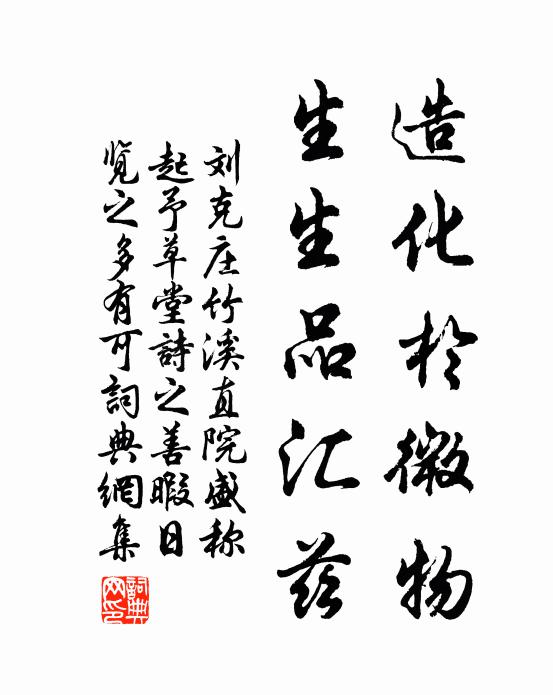 造化於微物
生生品汇兹
刘克庄竹溪直院盛称
起予草堂詩之善暇日
览之多有可詞典網集
詞典網印